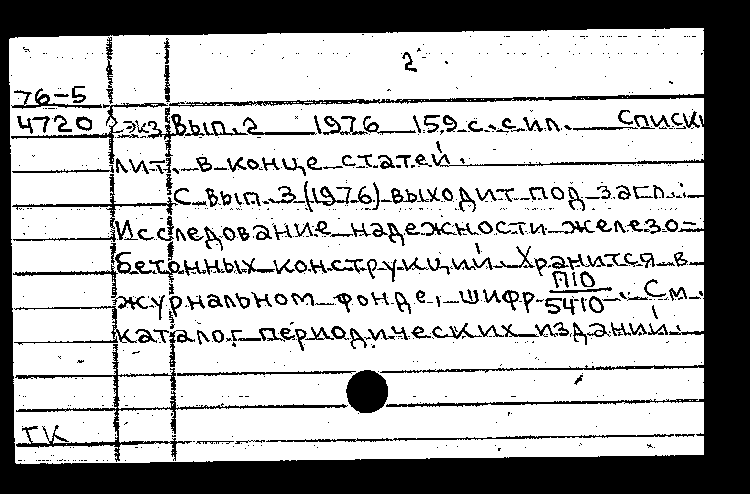 2
76-5
4720 экз Вып. 2 1976 159 с. с ил. Списки
лит. в конце статей.
С вып. 3 (1976) выходит под загл.:
Исследование надежности железо-
бетонных конструкций. Хранится в
журнальном фонде, шифр П10/5410. См.
каталог периодических изданий.
ГК